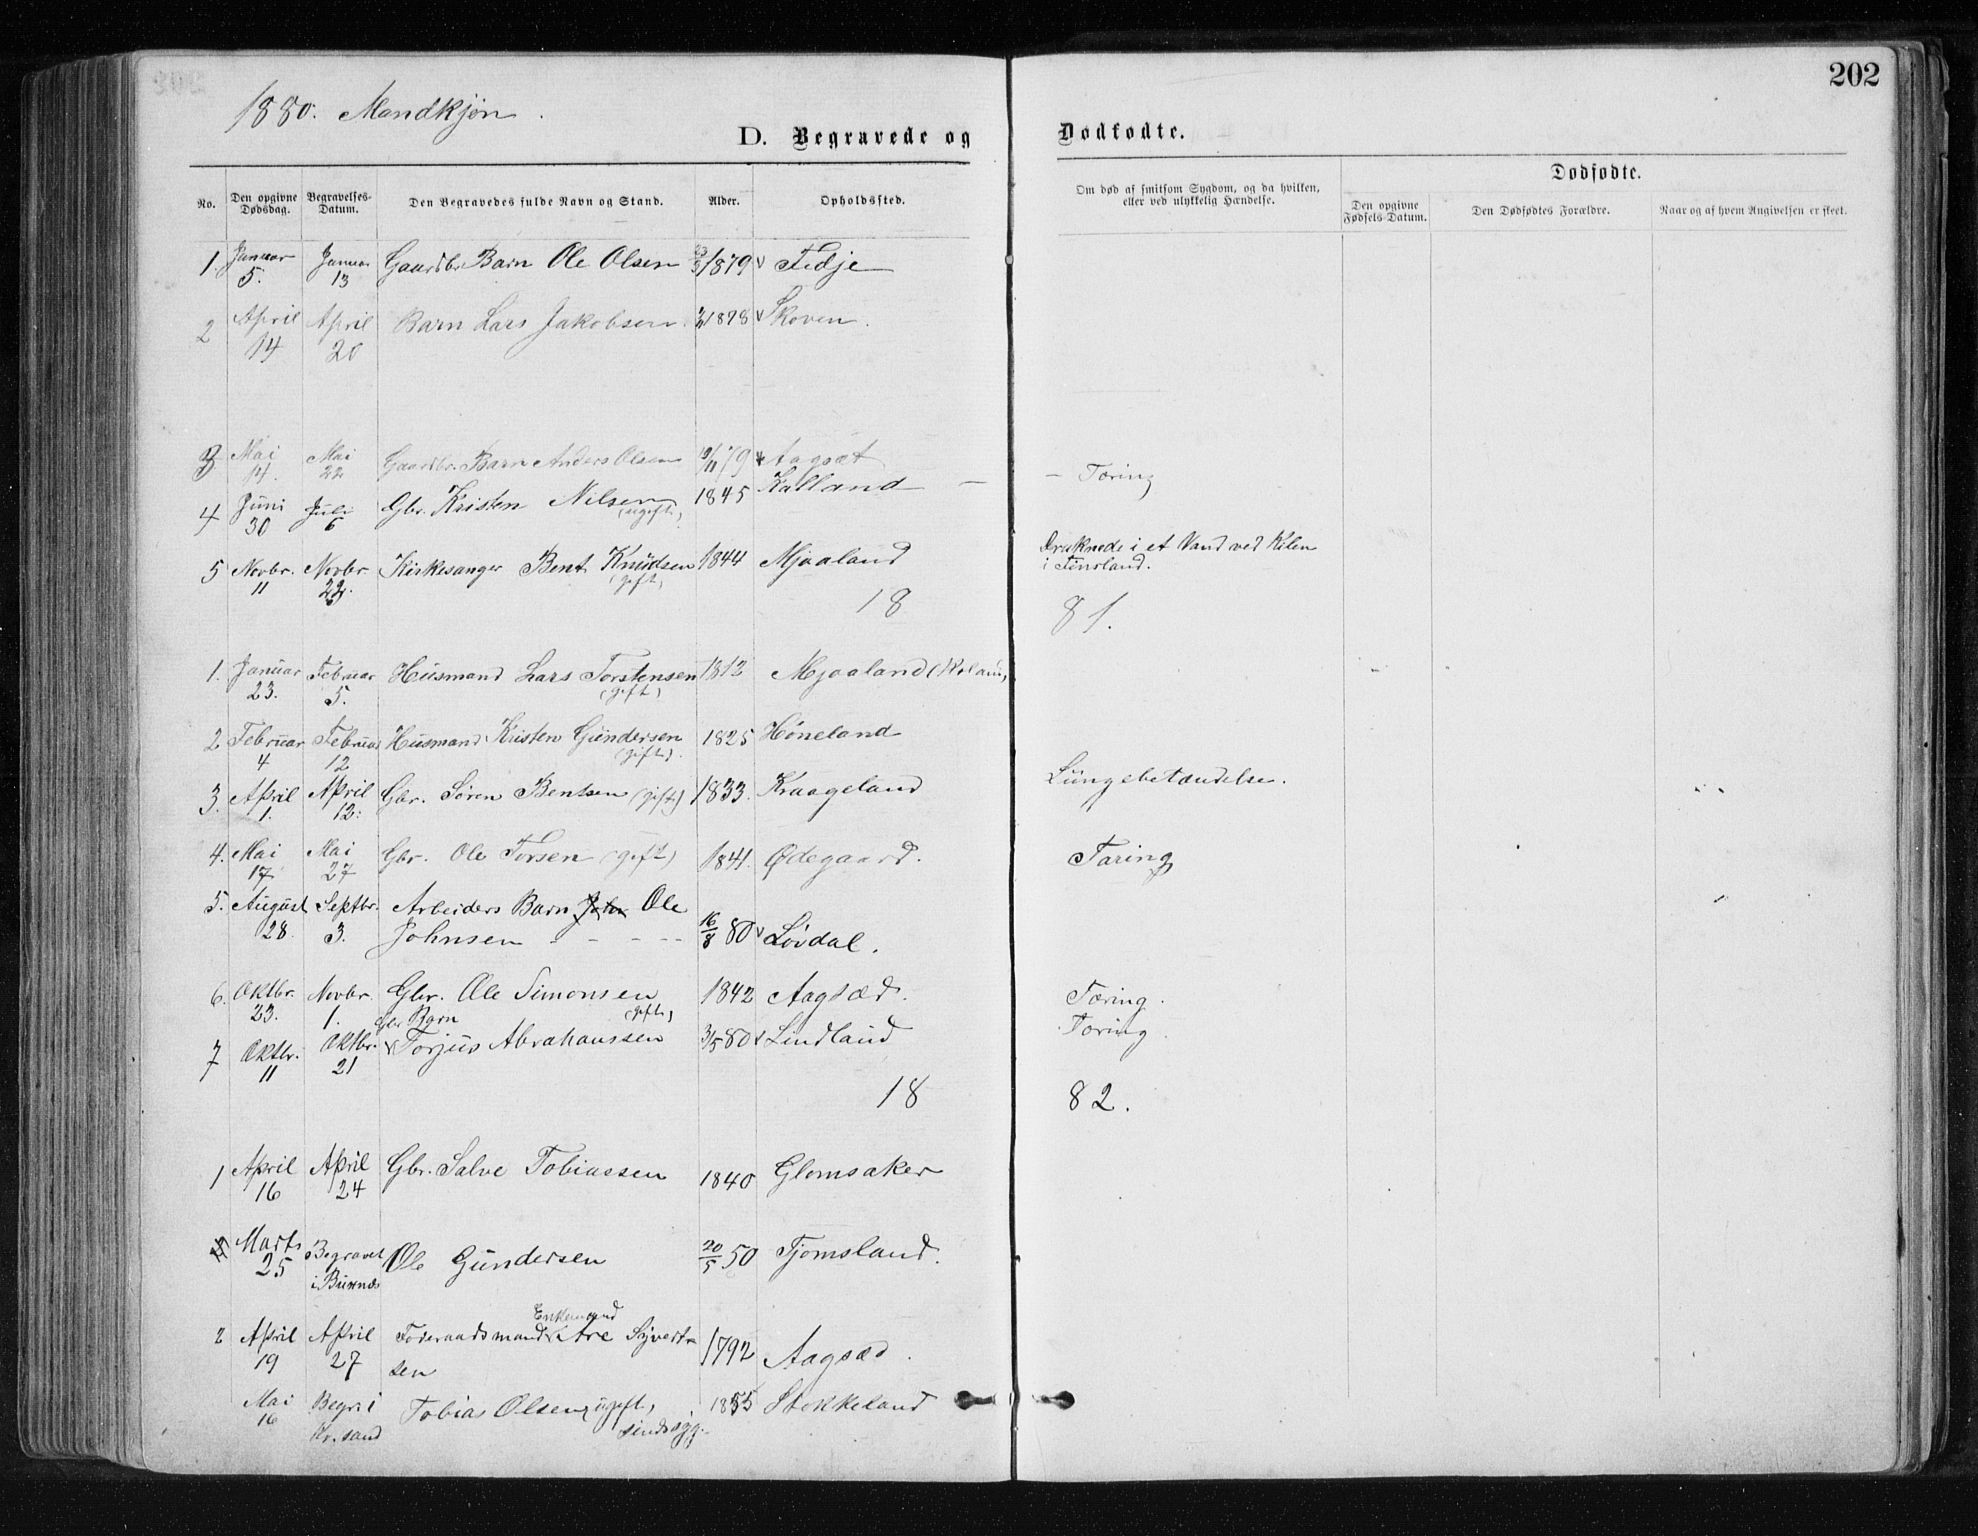 202
1880. Mandkjøn.
D. Begravede og Dødfødte.
No. Den opgivne Dødsdag. Begravelses-Datum. Den Begravedes fulde Navn og Stand. Alder. Opholdssted. Om død af smitsom Sygdom, og da hvilken, eller ved ulykkelig Hændelse. Dødfødte.
Den opgivne Fødsels-Datum. Den Dødfødtes Forældre. Naar og af hvem Angivelsen er skeet.
1. Januar 5. Januar 13 Gaardbr. Barn Ole Olsen 1879 Fidje
2 April 14 April 20 Barn Lars Jakobsen 1878 Skoven.
3 Mai 14. Mai 22 Gaardbr. Barn Anders Olsen 79 Aagsæt
4 Juni 30 Juli 6 Gbr. Kristen Nilsen (ugift) 1845 Kalland — — Tæring
5 Novbr. 11 Novbr. 22. Kirkesanger Bent Knudsen (gift) 1844 Mjaaland Druknede i et Vand ved Kilen
i Finsland.
18 81.
1. Januar 23. Februar 5. Husmand Lars Torstensen (gift) 1812 Mjaaland
2 Februar 4 Februar 12 Husmand Kristen Gundersen (gift). 1825 Høneland
3. April 1. April 12. Gbr. Søren Bentsen (gift) 1833. Kraageland Lungebetændelse.
4. Mai 17 Mai 27 Gbr. Ole Torsen (gift) 1841. Ødegaard. Tæring
5. August 28. Septbr. 3. Arbeiders Barn John Ole
Johnsen 16/8 80 Løvdal.
6. Oktbr. 23. Novbr. 1. Gbr. Ole Simonsen (gift) 1842 Aagsæd. Tæring.
Gbr Barn
7 Oktbr. 11 Oktbr. 21 Torjus Abrahamssen 3/5 80 Lindland Tæring
18 82.
1 April 16 April 24 Gbr. Salve Tobiassen 1840 Glomsaker
Marts 25 Begravet i Bueness Ole Gundersen 20/5 50 Tjomsland.
Enkemand
2 April 19 April 27 Føderaadsmand Are Syverts
sen 1792 Aagsæd.
Mai 16 Begr. i Kr.sand Tobias Olsen, ugift, sindssyg. 1855 Stokkeland